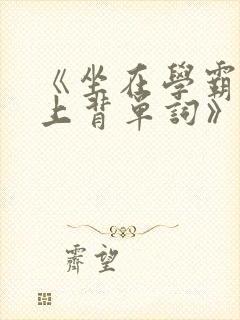 《坐在學霸
上背單詞》
霽望